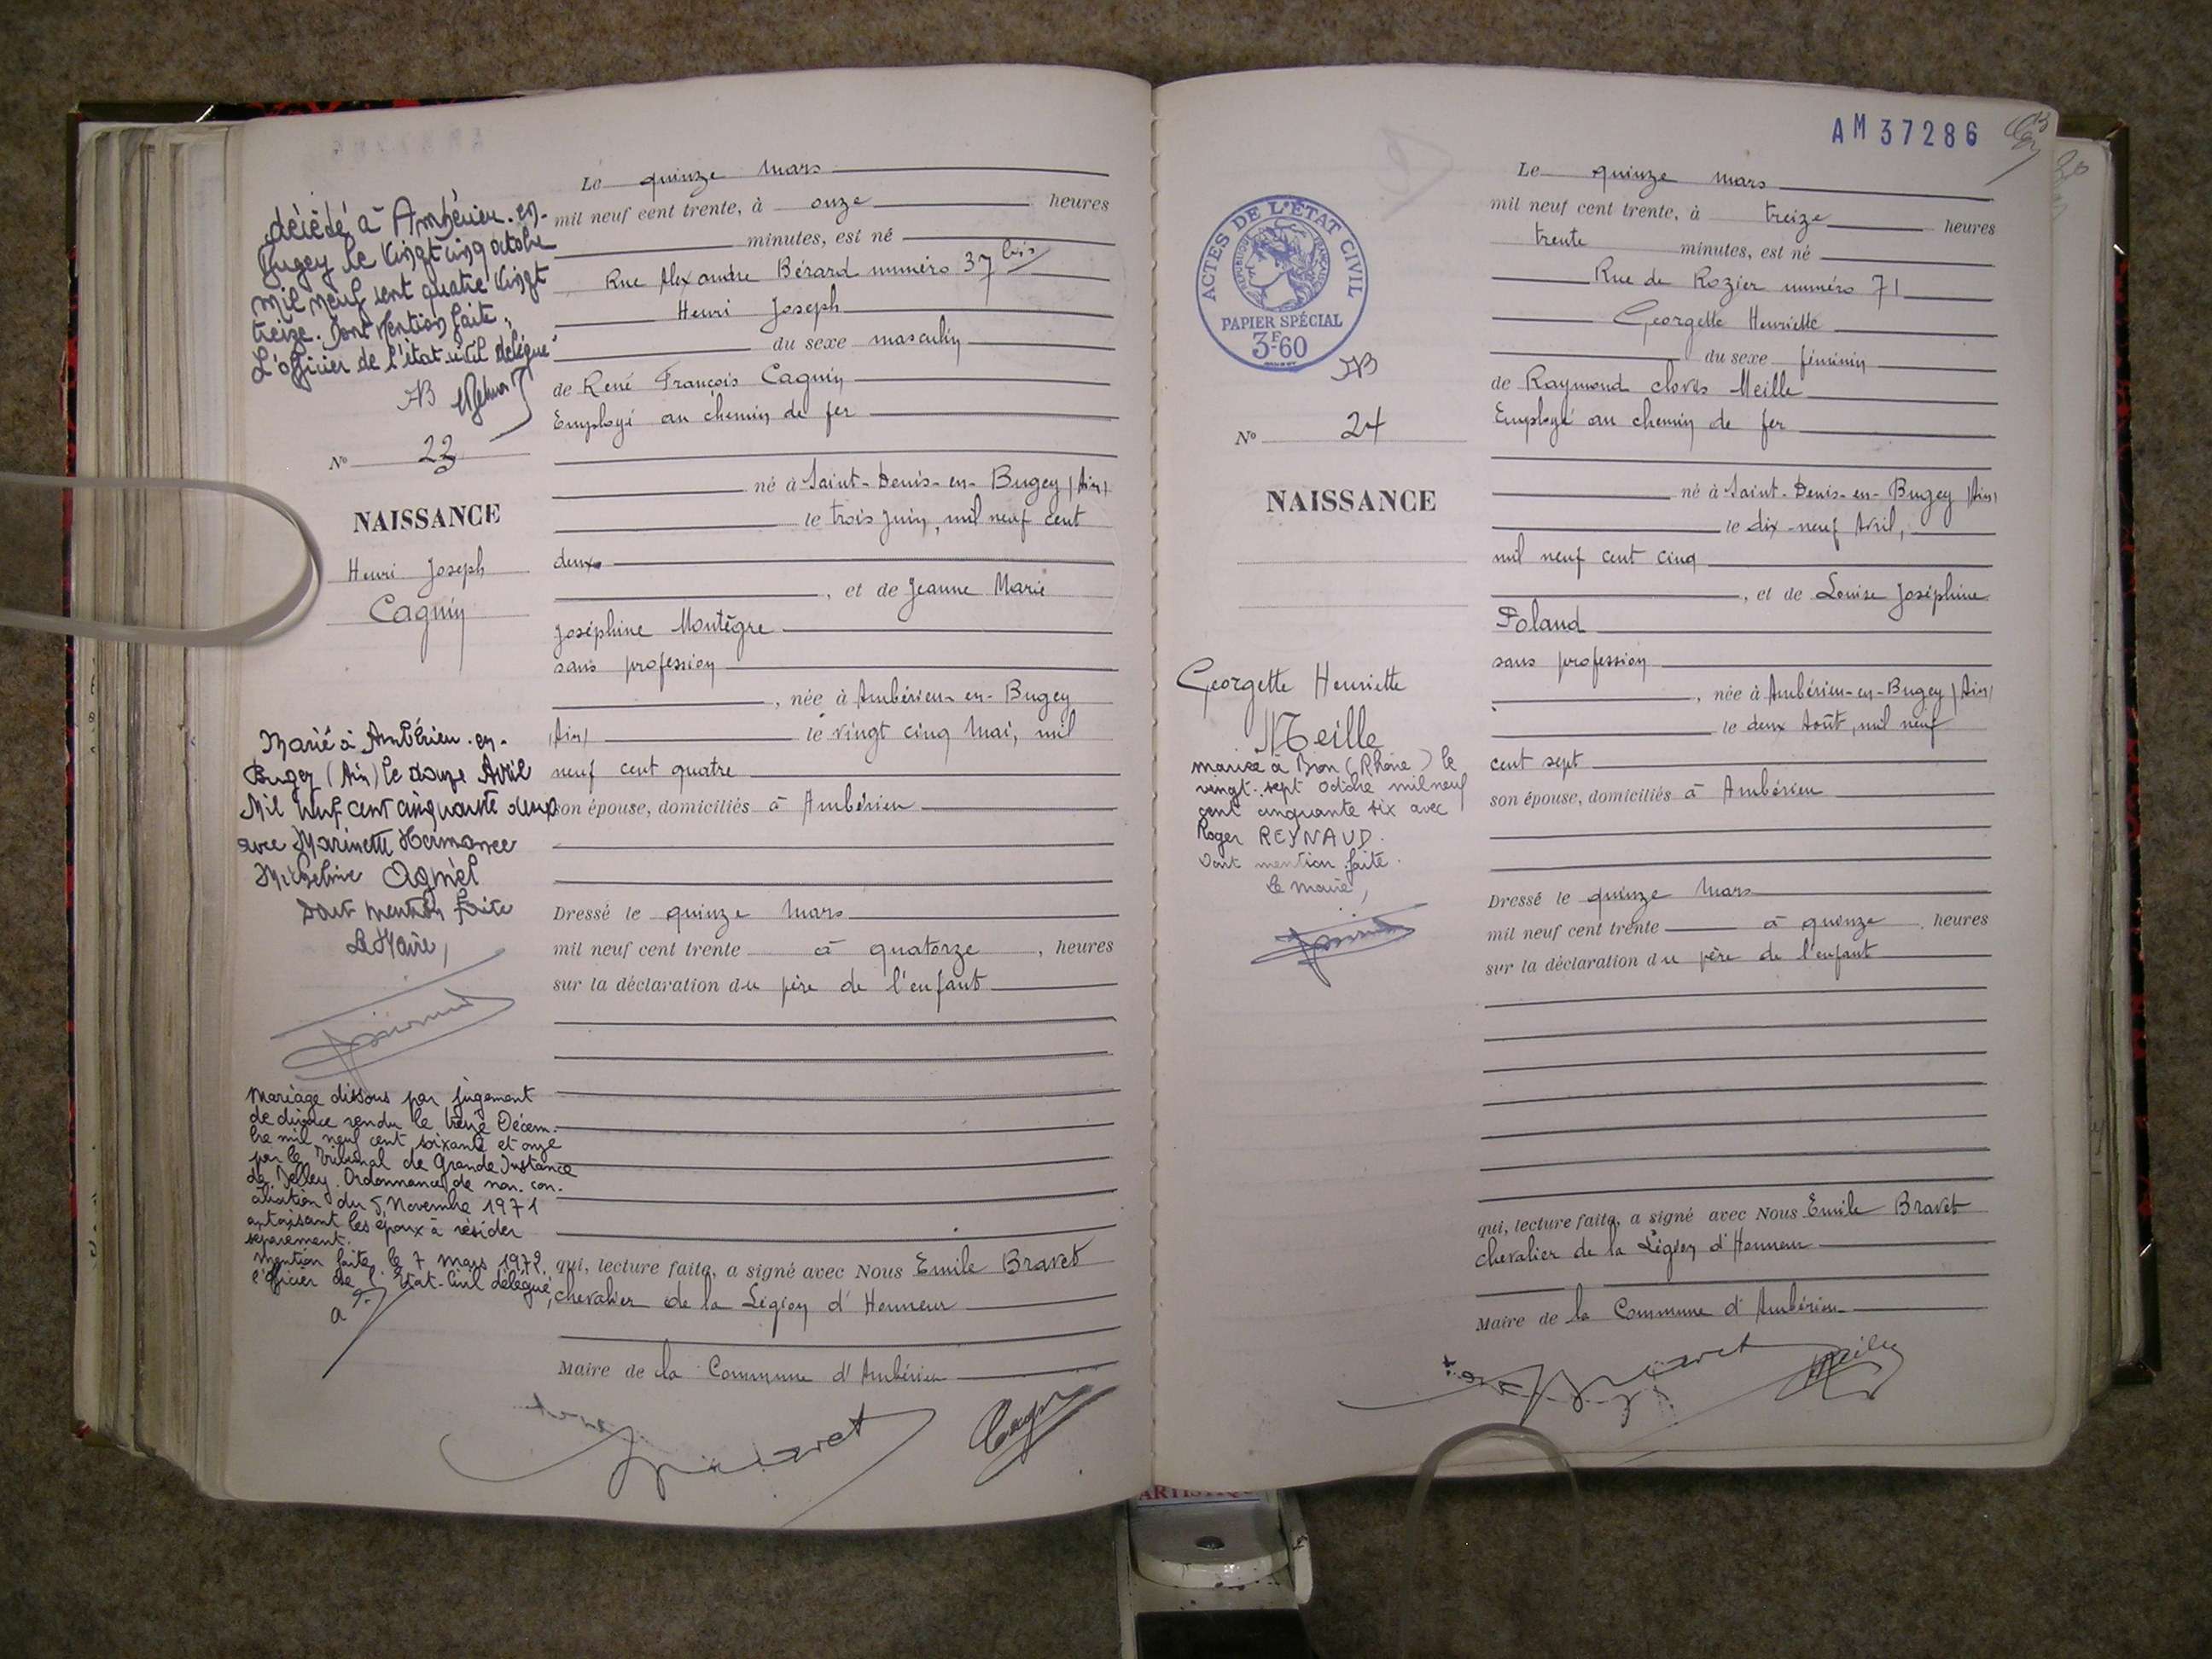 décédé à Ambérieu-en-
Bugey le vingt cinq octobre
mil neuf cent quatre vingt
treize. Dont mention faite,
L'officier de l'état civil délégué
N° 23
NAISSANCE
Henri Joseph
Cagnin
Marié à Ambérieu-en-
Bugey (Ain) le douze Avril
Mil neuf cent cinquante deux
avec Marinette Hermance
Micheline Agnèl
Dont mention faite
Le Maire,
Mariage dissous par jugement
de divorce rendu le treize Décem-
bre mil neuf cent soixante et onze
par le Tribunal de Grande Instance
de Belley. Ordonnance de non-con-
ciliation du 5 Novembre 1971
autorisant les époux à résider
séparément.
Mention faite le 7 mars 1972.
l'officier de l'Etat-Civil délégué,
Le quinze Mars
mil neuf cent trente, à onze heures
minutes, est né
Rue Alexandre Bérard numéro 37 bis
Henri Joseph
du sexe masculin
de René François Cagnin
Employé au chemin de fer
né à Saint-Denis-en-Bugey (Ain)
le trois Juin, mil neuf cent
deux
, et de Jeanne Marie
Joséphine Montègre
sans profession
, née à Ambérieu-en-Bugey
(Ain) le vingt cinq Mai, mil
neuf cent quatre
son épouse, domiciliés à Ambérieu
Dressé le quinze Mars
mil neuf cent trente à quatorze, heures
sur la déclaration du père de l'enfant
qui, lecture faite, a signé avec Nous Emile Bravet
chevalier de la Légion d'Honneur
Maire de la Commune d'Ambérieu
Bravet
AM 37286
ACTES DE L'ÉTAT CIVIL
RÉPUBLIQUE FRANÇAISE
PAPIER SPÉCIAL
3F60
N° 24
NAISSANCE
Georgette Henriette
Meille
mariée à Bron (Rhône) le
vingt-sept Octobre mil neuf
cent cinquante six avec
Roger REYNAUD.
Dont mention faite.
Le maire,
Le quinze mars
mil neuf cent trente, à treize heures
trente minutes, est né
Rue de Rozier numéro 71
Georgette Henriette
du sexe féminin
de Raymond clovis Meille
Employé au chemin de fer
né à Saint-Denis-en-Bugey (Ain)
le dix-neuf Avril,
mil neuf cent cinq
, et de Louise Joséphine
Poland
sans profession
, née à Ambérieu-en-Bugey (Ain)
le deux Août, mil neuf
cent sept
son épouse, domiciliés à Ambérieu
Dressé le quinze Mars
mil neuf cent trente à quinze, heures
sur la déclaration du père de l'enfant
qui, lecture faite, a signé avec Nous Emile Bravet
chevalier de la Légion d'Honneur
Maire de la Commune d'Ambérieu
Bravet
Meille
ARTISTIQUE